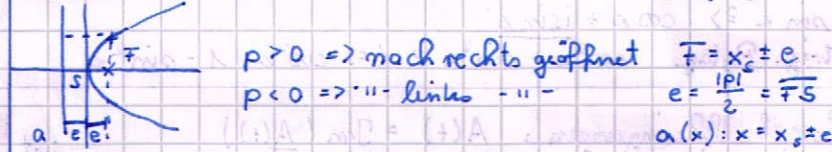 F
S
a e e
p > 0 => nach rechts geöffnet
p < 0 => -"- links -"-
F = x_s ± e
e = |p|/2 = \overline{FS}
a(x): x = x_s ± e